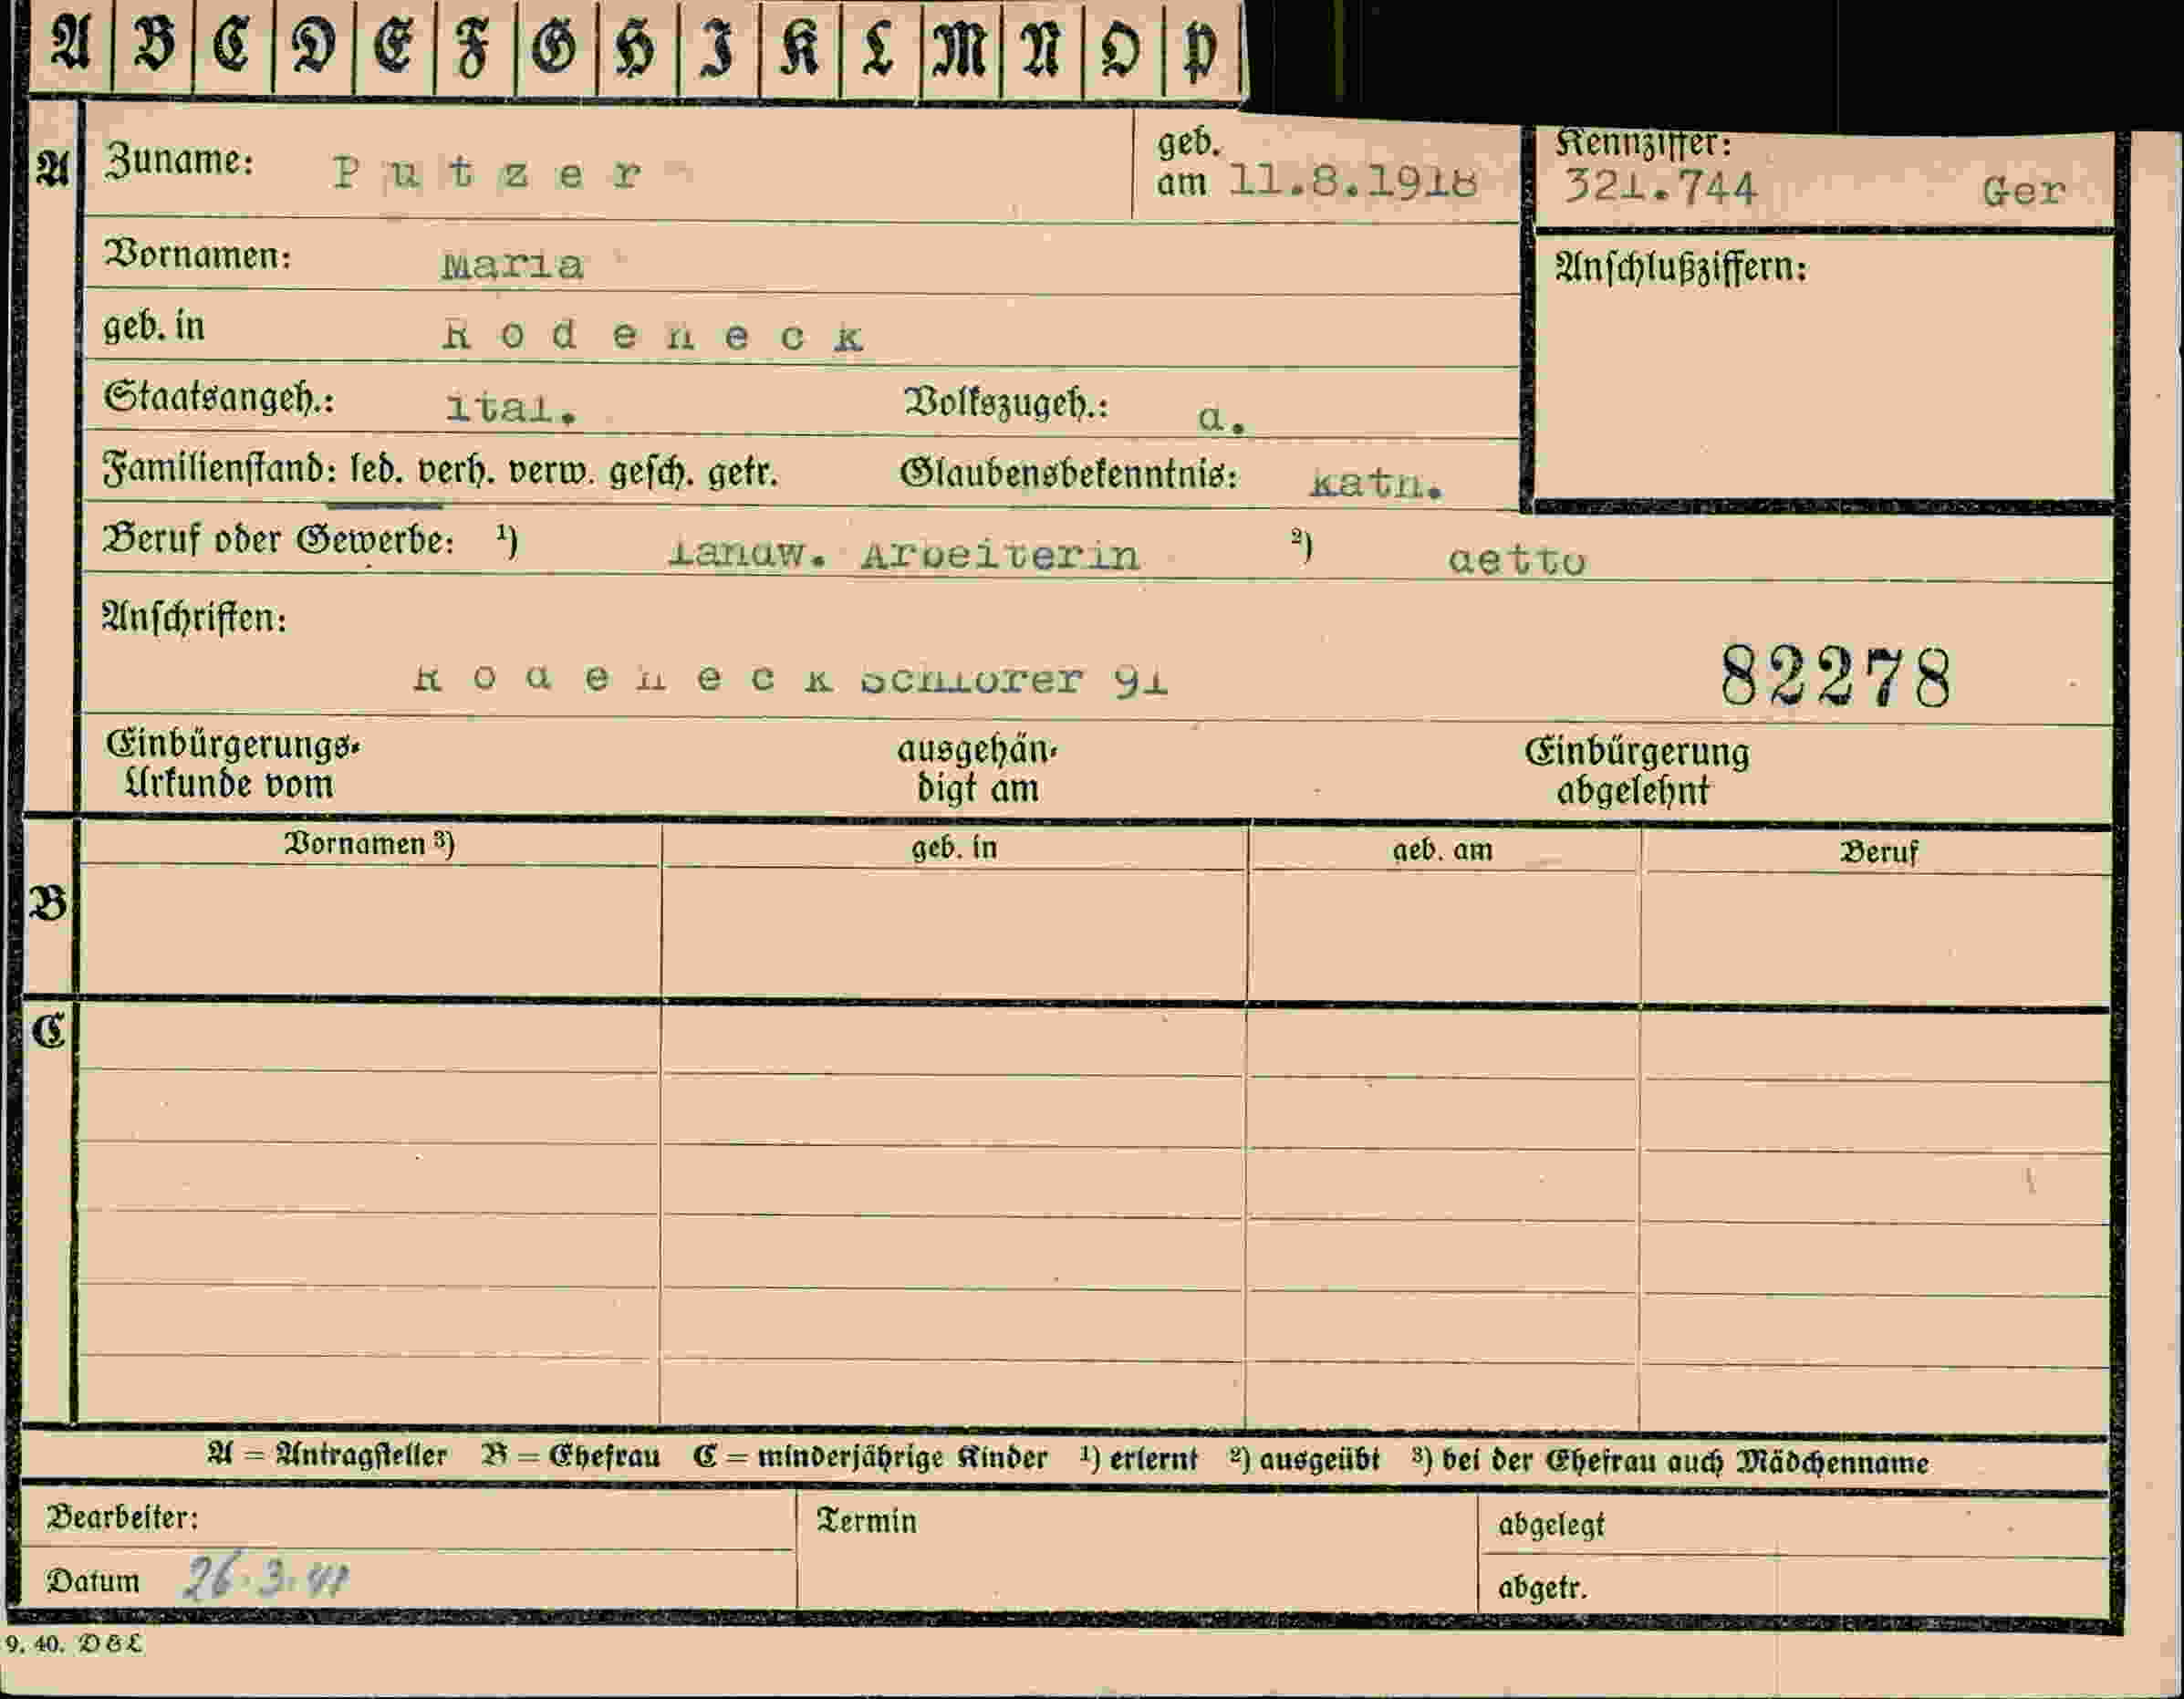 A B C D E F G H I K L M N O P
A Zuname: Putzer geb. am 11.8.1918 Kennziffer: 321.744 Ger
Vornamen: Maria Anschlußziffern:
geb. in Rodeneck
Staatsangeh.: ital. Volkszugeh.: d.
Familienstand: led. verh. verw. gesch. getr. Glaubensbekenntnis: kath.
Beruf oder Gewerbe: ¹) landw. Arbeiterin ²) detto
Anschriften:
Rodeneck 91
82278
Einbürgerungs-Urkunde vom ausgehändigt am Einbürgerung abgelehnt
Vornamen ³) geb. in geb. am Beruf
B
C
A = Antragsteller B = Ehefrau C = minderjährige Kinder ¹) erlernt ²) ausgeübt ³) bei der Ehefrau auch Mädchenname
Bearbeiter: Termin abgelegt
Datum 26.3.41 abgetr.
9. 40. D & L